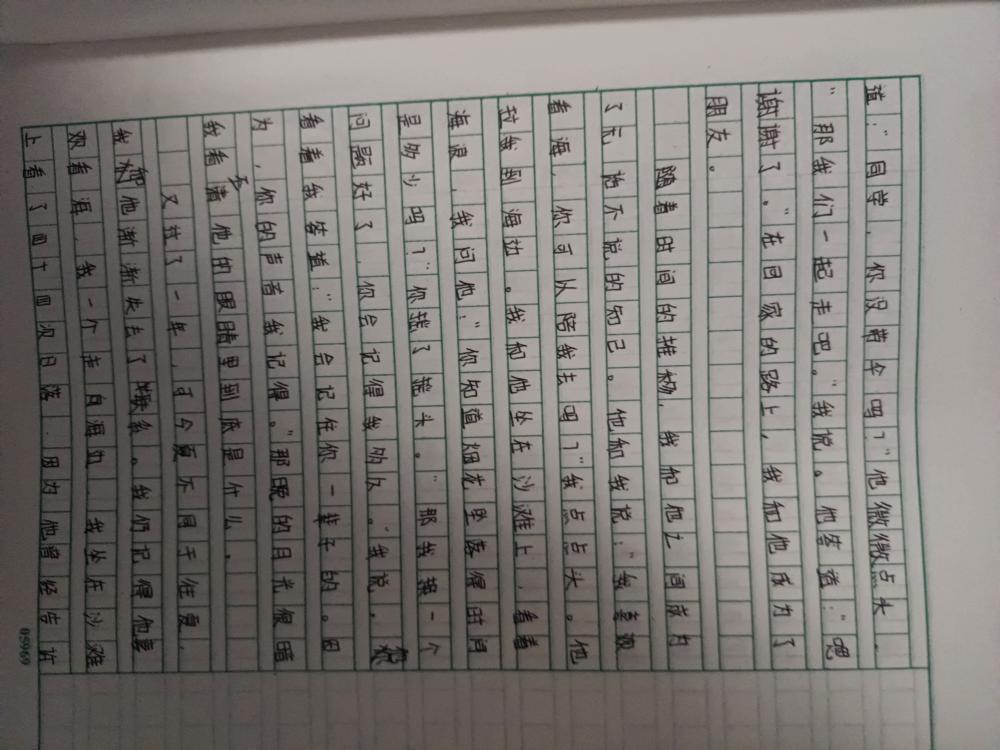 道:"同学,你没带伞吗?"他微微点头,
"那我们一起走吧。"我说。他答道:"吧
谢谢了。"在回家的路上,我和他成为了
朋友。
随着时间的推杨,我和他之间成为
了无话不说的知己。他和我说:"我喜欢
看海,你可以陪我去吗?"我点点头。他
拉我到海边。我和他坐在沙滩上,看着
海浪,我问他:"你知道烟花坠落得时间
是多少吗?"你摇了摇头。"那我换一个
问题好了,你会记得我多久。"我说,你
看着我答道:"我会记住你一辈子的。因
为,你的声音我记得。"那晚的月光很暗
我看不清他的眼睛里到底是什么。
又往了一年,可今夏不同于往夏,
我和他渐渐失去了联系。我仍记得他喜
欢看海,我一个走向海边,我坐在沙滩
上看了四十四次日落,因为他曾经告诉
05969